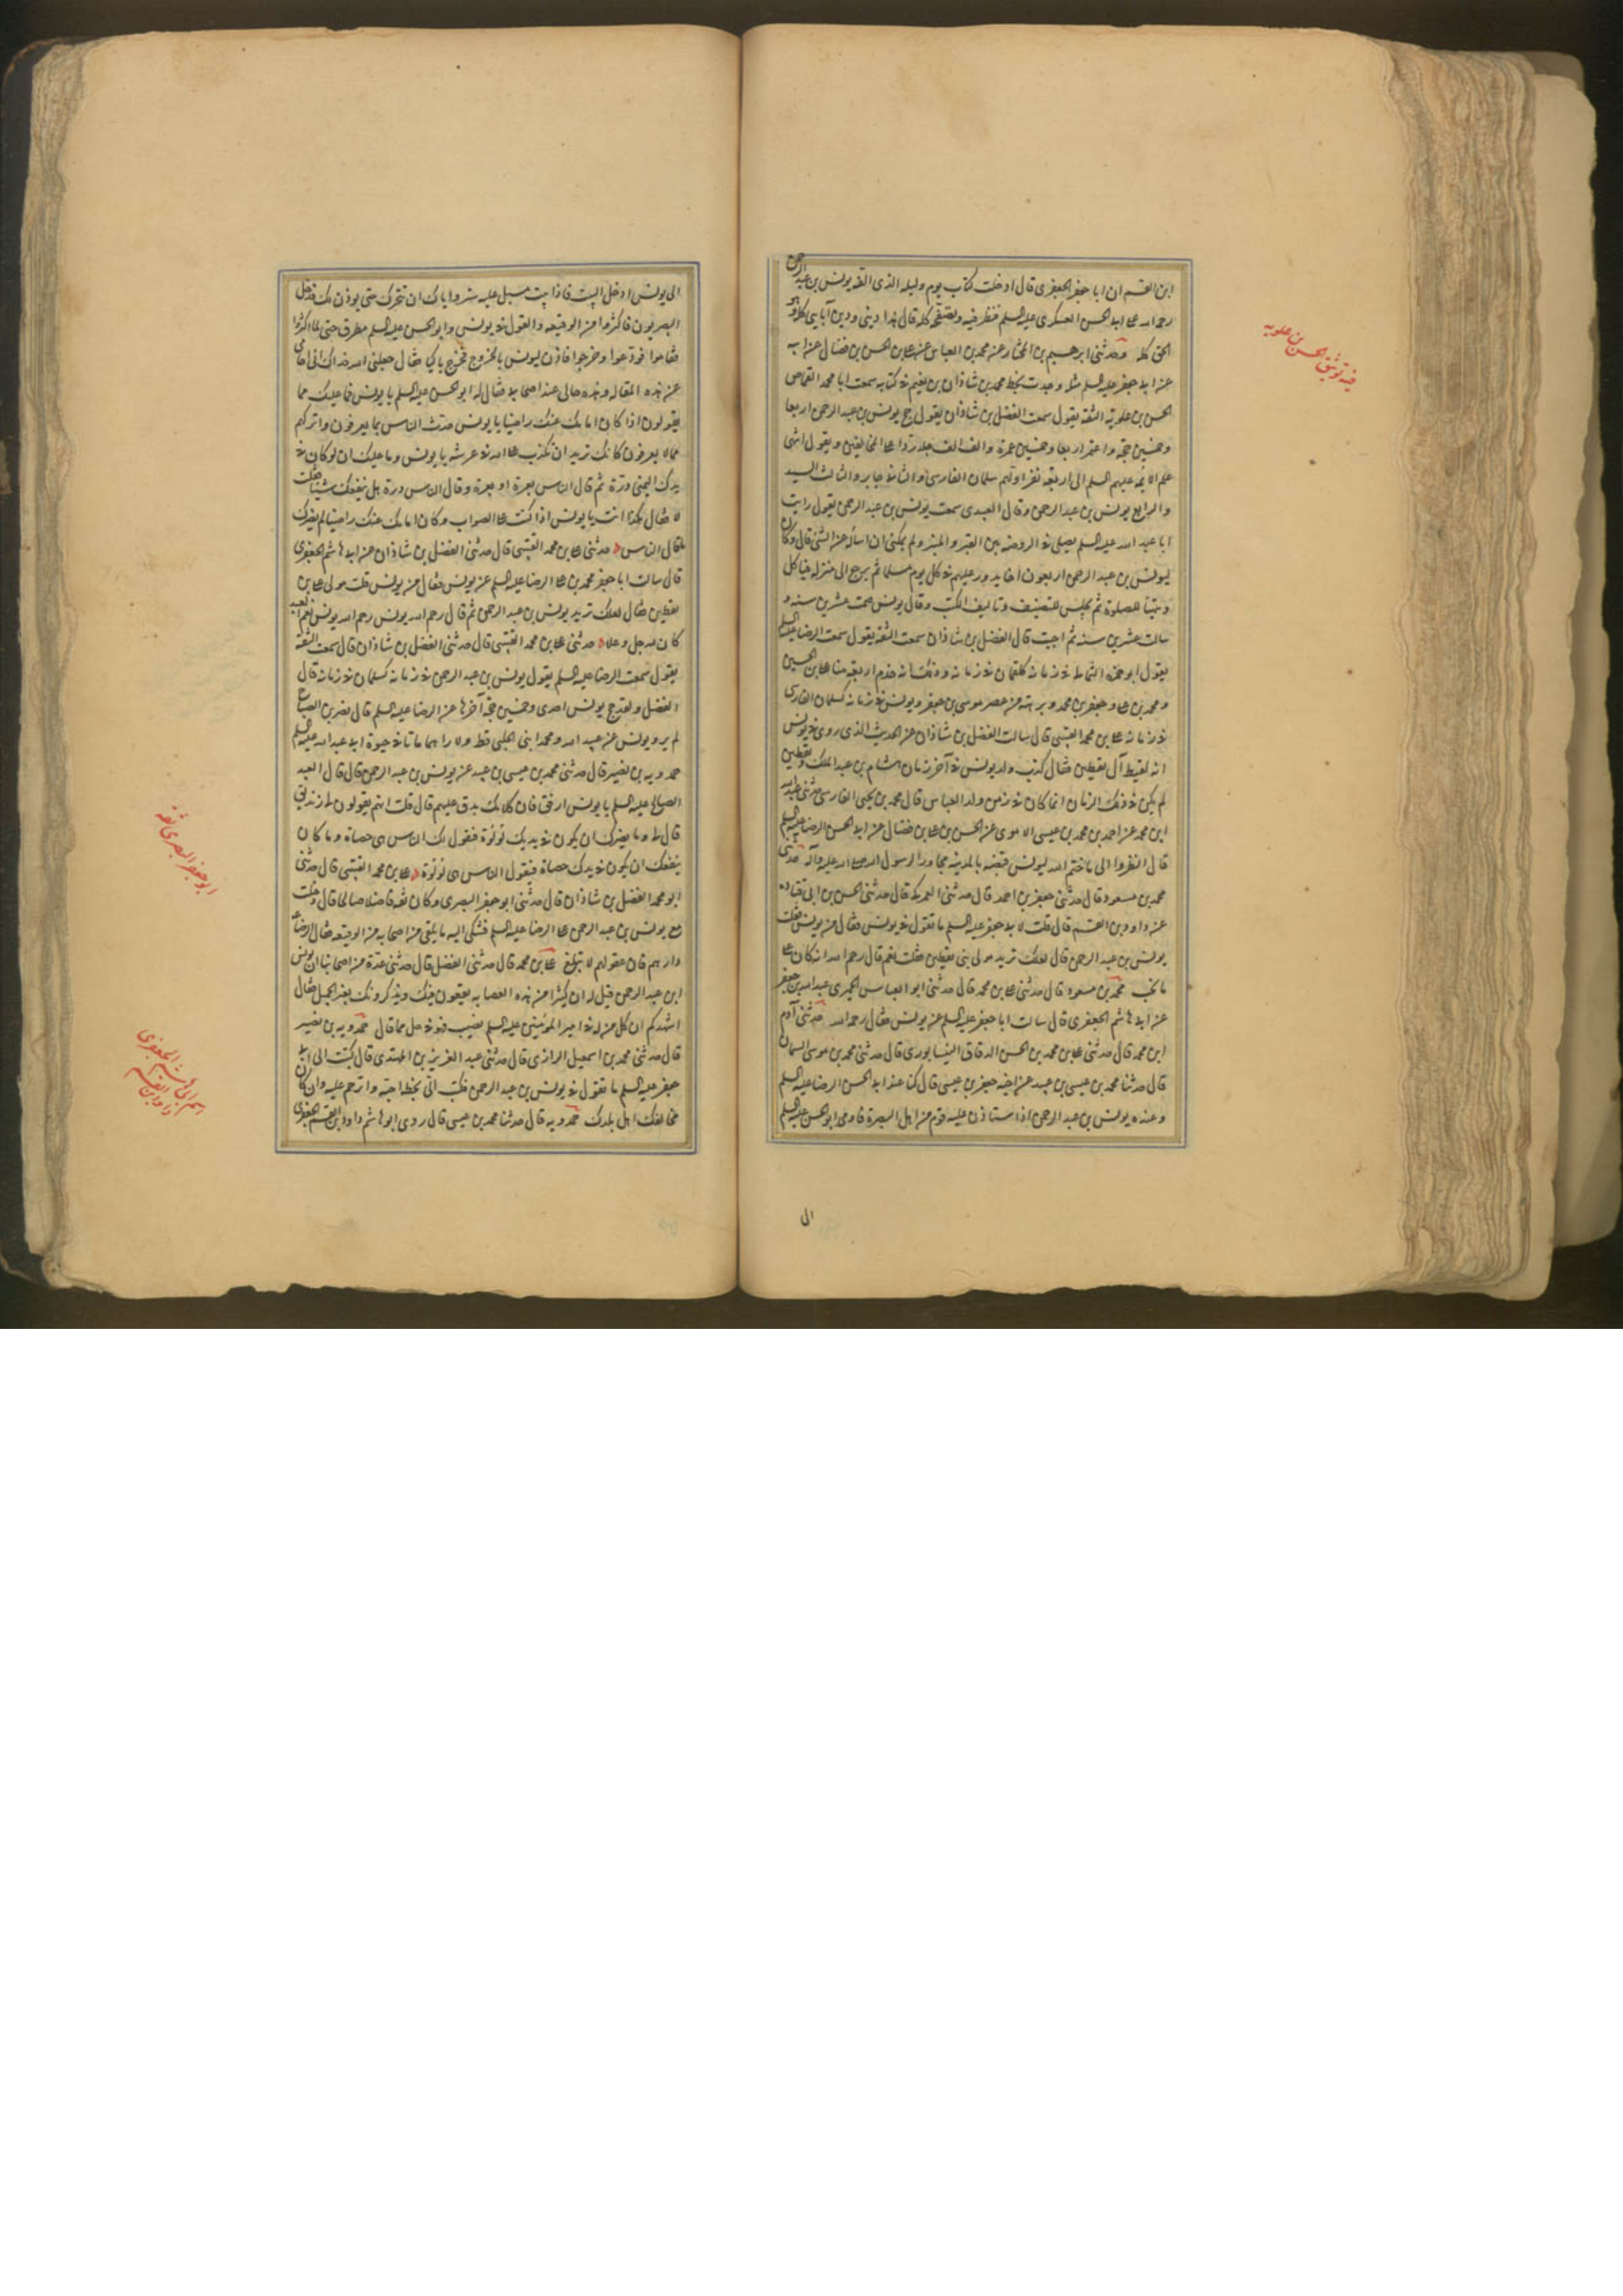 ابن القسم ان ابا جعفر الجعفرى قال ادخلت كتاب يوم وليله الذى الفه يونس بن عبد الرحمن
رحمه الله على ابى الحسن العسكرى عليه السلم فنظر فيه وتصفحه كله قال هذا دينى ودين آبايى كله وهو
الحق كله وحدثنى ابرهيم بن المختار عن محمد بن العباس عن على بن الحسن بن فضال عن ابيه
عن ابى جعفر عليه السلم مثله وجدت بخط محمد بن شاذان بن نعيم فى كتابه سمعت ابا محمد القماص
الحسن بن علوية الثقة يقول سمعت الفضل بن شاذان يقول حج يونس بن عبد الرحمن اربعا
وخمسين حجة واعتمر اربعا وخمسين عمرة والف الف جلد ردا على المخالفين ويقول انتهى
علم الائمه عليهم السلم الى اربعة نفر اولهم سلمان الفارسى والثانى جابر والثالث السيد
والرابع يونس بن عبد الرحمن وقال العبدى سمعت يونس بن عبد الرحمن يقول رايت
ابا عبد الله عليه السلم يصلى فى الروضه بين القبر والمنبر ولم يمكنى ان اسأله عن الشئ قال وكان
ليونس بن عبد الرحمن اربعون اخا يدور عليهم فى كل يوم مسلما ثم يرجع الى منزله فياكل
ويتهيأ للصلوة ثم يجلس للتصنيف وتاليف الكتب وقال يونس صمت عشرين سنه و
سالت عشرين سنه ثم اجبت قال الفضل بن شاذان سمعت الثقة يقول سمعت الرضا عليه السلم
يقول ابو حمزه الثمالى فى زمانه كلقمان فى زمانه وذلك انه خدم اربعة منا على بن الحسين
ومحمد بن على وجعفر بن محمد وبرهة من عصر موسى بن جعفر ويونس فى زمانه كسلمان الفارسى
فى زمانه على بن محمد القتيبى قال سالت الفضل بن شاذان عن الحديث الذى روى فى يونس
انه لقيط آل يقطين فقال كذب ولد يونس فى آخر زمان هشام بن عبد الملك ويقطين
لم يكن فى ذلك الزمان انما كان فى زمن ولد العباس قال محمد بن يحيى الفارسى حدثنى عبد الله
ابن محمد عن احمد بن محمد بن عيسى الاموى عن الحسن بن على بن فضال عن ابى الحسن الرضا عليه السلم
قال انظروا الى ما ختم الله ليونس قبضه بالمدينه مجاورا لرسول الله صلى الله عليه وآله حدثنى
محمد بن مسعود قال حدثنى جعفر بن احمد قال حدثنى العمركى قال حدثنى الحسن بن ابى قتاده
عن داود بن القسم قال قلت لابى جعفر عليه السلم ما تقول فى يونس فقال من يونس فقلت
يونس بن عبد الرحمن قال لعلك تريد مولى بنى يقطين فقلت نعم قال رحمه الله انه كان على
ما نحب محمد بن مسعود قال حدثنى على بن محمد قال حدثنى ابو العباس الحميرى عبد الله بن جعفر
عن ابى هاشم الجعفرى قال سالت ابا جعفر عليه السلم عن يونس فقال رحمه الله حدثنى آدم
ابن محمد قال حدثنى على بن محمد بن الحسن الدقاق النيسابورى قال حدثنى محمد بن موسى السمان
قال حدثنا محمد بن عيسى بن عبيد عن اخيه جعفر بن عيسى قال كنا عند ابى الحسن الرضا عليه السلم
وعنده يونس بن عبد الرحمن اذا ستاذن عليه قوم من اهل البصرة فاومى ابو الحسن عليه السلم
الى
فيه توثيق الحسن بن علويه
الى يونس ادخل البيت فاذا بيت مسبل عليه ستر واياك ان تتحرك حتى يوذن لك فدخل
البصريون فاكثروا من الوقيعه والقول فى يونس وابو الحسن عليه السلم مطرق حتى لما اكثروا
فقاموا فودعوا وخرجوا فاذن ليونس بالخروج فخرج باكيا فقال جعلنى الله فداك انى احامى
عن هذه المقاله وهذه حالى عند اصحابى فقال له ابو الحسن عليه السلم يا يونس فما عليك مما
يقولون اذا كان امامك عنك راضيا يا يونس حدث الناس بما يعرفون واتركهم
مما لا يعرفون كانك تريد ان تكذب على الله فى عرشه يا يونس وما عليك ان لو كان فى
يدك اليمنى درة ثم قال الناس بعرة او بعرة وقال الناس درة هل ينفعك شيئا فقلت
لا فقال هكذا انت يا يونس اذا كنت على الصواب وكان امامك عنك راضيا لم يضرك
ما قال الناس حدثنى على بن محمد القتيبى قال حدثنى الفضل بن شاذان عن ابى هاشم الجعفرى
قال سالت ابا جعفر محمد بن على الرضا عليه السلم عن يونس فقال من يونس قلت مولى على بن
يقطين فقال لعلك تريد يونس بن عبد الرحمن ثم قال رحمه الله يونس رحم الله يونس نعم العبد
كان لله جل وعلا حدثنى على بن محمد القتيبى قال حدثنى الفضل بن شاذان قال سمعت الثقة
يقول سمعت الرضا عليه السلم يقول يونس بن عبد الرحمن فى زمانه كسلمان فى زمانه قال
الفضل ولقد حج يونس احدى وخمسين حجة آخرها عن الرضا عليه السلم قال نصر بن الصباح
لم يرو يونس عن عبيد الله ومحمد ابنى الحلبى قط ولا راهما ماتا فى حيوة ابى عبد الله عليه السلم
حمدويه بن نصير قال حدثنى محمد بن عيسى بن عبيد عن يونس بن عبد الرحمن قال قال العبد
الصالح عليه السلم يا يونس ارفق فان كلامك يدق عليهم قال قلت انهم يقولون لى زنديق
قال لى وما يضرك ان يكون فى يديك لؤلؤة فيقول لك الناس هى حصاة وما كان
ينفعك ان يكون فى يدك حصاة فيقول الناس هى لؤلؤة على بن محمد القتيبى قال حدثنى
ابو محمد الفضل بن شاذان قال حدثنى ابو جعفر البصرى وكان ثقه فاضلا صالحا قال دخلت
مع يونس بن عبد الرحمن على الرضا عليه السلم فشكى اليه ما يلقى من اصحابه من الوقيعه فقال الرضا ع
دارهم فان عقولهم لا تبلغ على بن محمد قال حدثنى الفضل قال حدثنى عدة من اصحابنا ان يونس
ابن عبد الرحمن قيل له ان كثيرا من هذه العصابه يقعون فيك ويذكرونك بغير الجميل فقال
اشهدكم ان كل من له فى امير المؤمنين عليه السلم نصيب فهو فى حل مما قال حمدويه بن نصير
قال حدثنى محمد بن اسمعيل الرازى قال حدثنى عبد العزيز بن المهتدى قال كتبت الى ابى
جعفر عليه السلم ما تقول فى يونس بن عبد الرحمن فكتب الى بخطه احبه واترحم عليه وان كان
يخالفك اهل بلدك حمدويه قال حدثنا محمد بن عيسى قال روى ابو هاشم داود بن القسم الجعفرى
ابو جعفر البصرى ثقه
اسم ابى هاشم الجعفرى
داود بن القسم